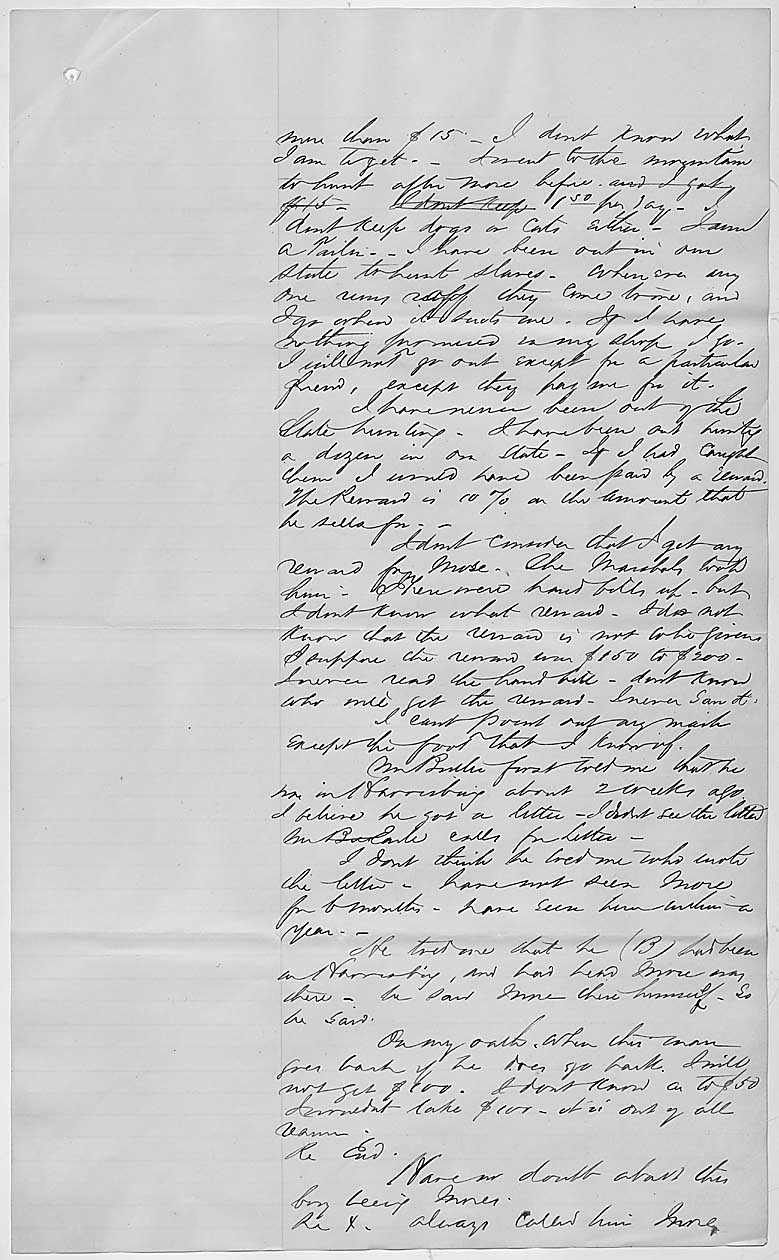 more than $15 - I dont know what
I am to get. - I went to the mountain
to hunt after Mose before. and I got
$15 - I dont keep 1 50 per day - I
dont keep dogs or cats either - I am
a Tailor - - I have been out in our
State to hunt slaves - whenever any
one runs off they come to me, and
I go when it suits me. If I have
nothing promised in my shop I go.
I will not go out except for a particular
friend, except they pay me for it -
I have never been out of the
State hunting - I have been out hunting
a dozen in our State - If I had caught
them I would have been paid by a reward.
The Reward is 10 % on the amount that
he sells for - -
I dont consider that I get any
reward for Mose. The Marshals took
him - There were hand bills up - but
I dont know what reward - I do not
know that the reward is not to be given
I suppose the reward was $150 to $200 -
I never read the hand bill - dont know
who will get the reward - I never saw it.
I cant point out any mark
except the foot that I know of.
Mr Butler first told me that he
was in Harrisburg about 2 weeks ago
I believe he got a letter - I didnt see the letter
Mr Earle calls for letter -
I dont think he told me who wrote
the letter - have not seen Mose
for 6 months - have seen him within a
year. -
He told me that he (B) had been
in Harrisburg, and had heard Mose was
there - he saw Mose there himself - So
he said.
On my oath. When this man
goes back if he does go back. I will
not get $100. I dont know as to $50
I wouldnt take $100 - it is out of all
reason -
Re Exd.
Have no doubt about this
boy being Moses.
Re X. always called him Mose